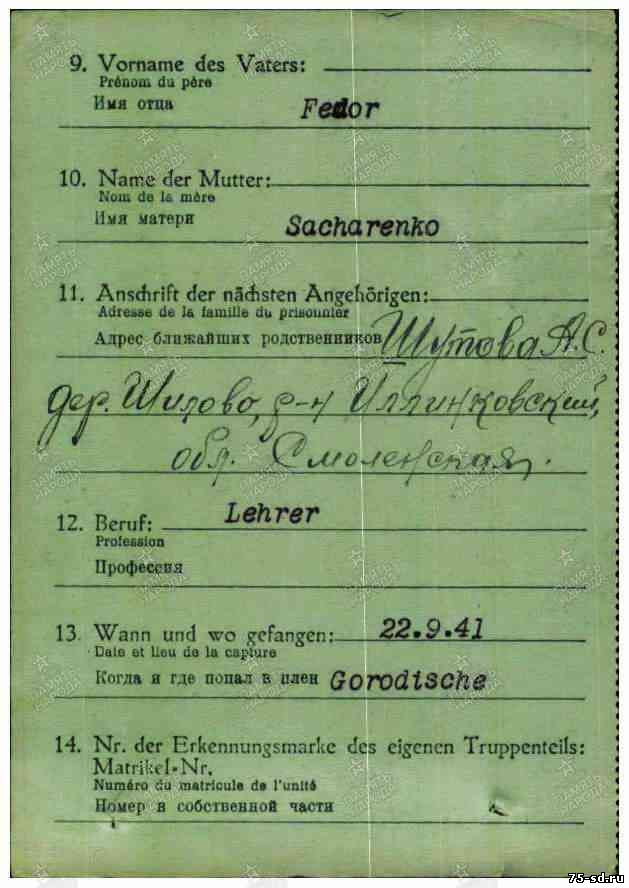 9. Vorname des Vaters:
Prénom du père
Имя отца Fedor
10. Name der Mutter:
Nom de la mère
Имя матери Sacharenko
11. Anschrift der nächsten Angehörigen:
Adresse de la famille du prisonnier
Адрес ближайших родственников Шутова А.С.
дер. Шилово, р-н Иллинковский,
обл. Смоленская.
12. Beruf: Lehrer
Profession
Профессия
13. Wann und wo gefangen: 22.9.41
Date et lieu de la capture
Когда и где попал в плен Gorodische
14. Nr. der Erkennungsmarke des eigenen Truppenteils:
Matrikel-Nr.
Numéro du matricule de l'unité
Номер в собственной части
75-sd.ru
ПАМЯТЬ НАРОДА